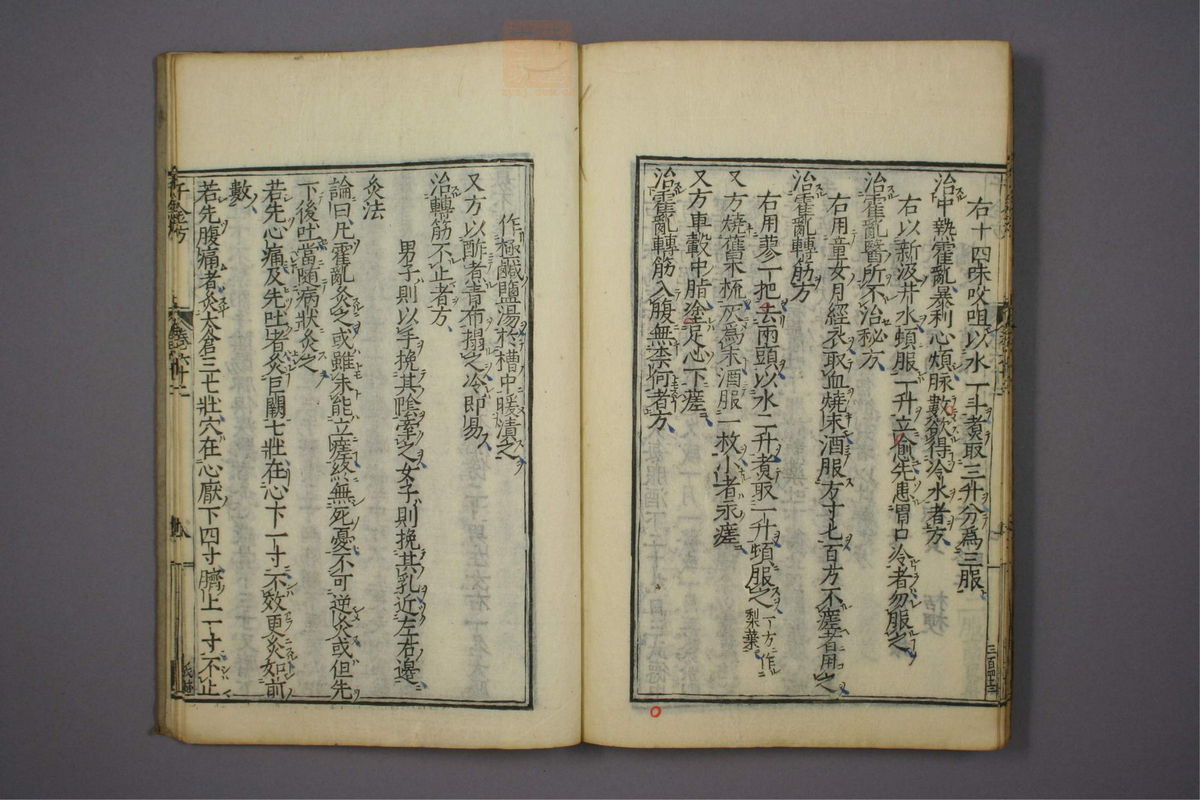 右十四味㕮咀以水一斗煮取三升分爲三服
治中熱霍亂暴利心煩脉數欲得冷水者方
右以新汲井水頓服一升立愈先患胃口冷者勿服之
治霍亂醫所不治秘方
右用童女月經衣取血燒末酒服方寸匕百方不瘥者用之
治霍亂轉筋方
右用蓼一把去兩頭以水二升煮取一升頓服之 一方作梨葉
又方燒舊木梳灰爲末酒服一枚小者永瘥
又方車轂中脂塗足心下瘥
治霍亂轉筋入腹無柰何者方
作極鹹鹽湯於槽中暖漬之
又方以酢煮青布搨之冷即易
治轉筋不止者方
男子則以手挽其陰牽之女子則挽其乳近左右邊
灸法
論曰凡霍亂灸之或雖未能立瘥終無死憂不可逆灸或但先
下後吐當隨病狀灸之
若先心痛及先吐者灸巨闕七壯在心下一寸不效更灸如前
數
若先腹痛者灸太倉二七壯穴在心厭下四寸臍上一寸不止